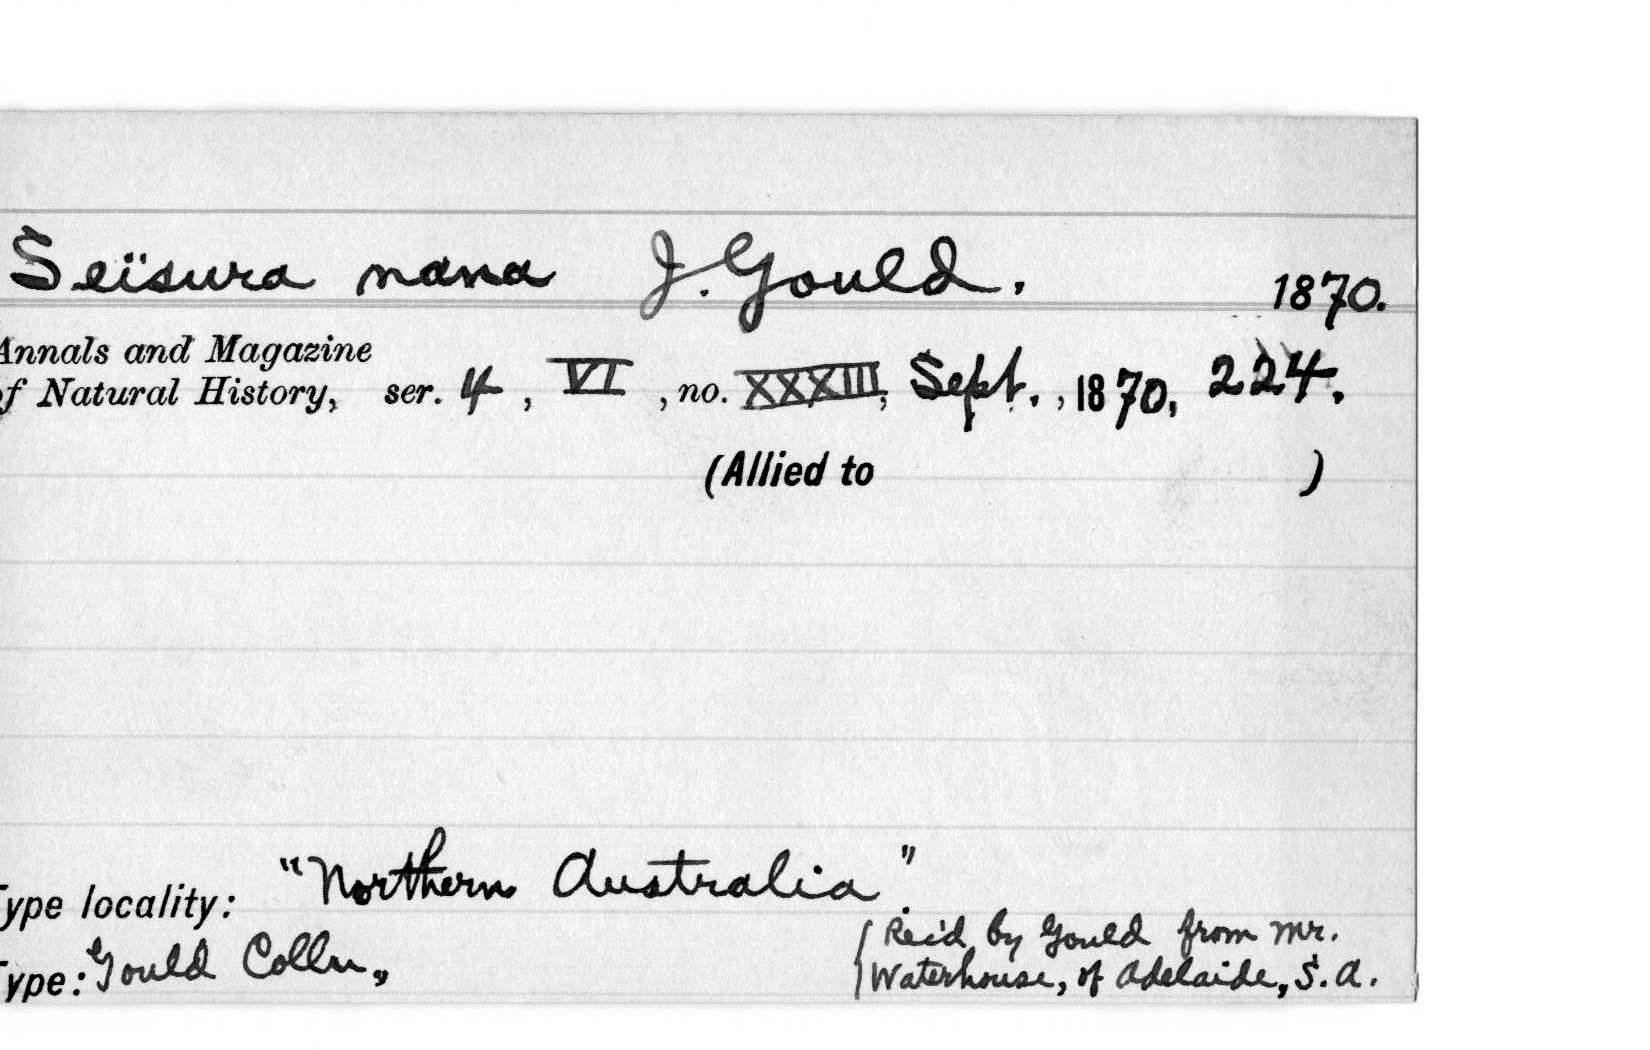 Seïsura nana J. Gould. 1870.
Annals and Magazine
of Natural History, ser. 4, VI, no. XXXIII, Sept., 1870, 224.
(Allied to )
Type locality: "Northern Australia".
Type: Gould Colln., {Rec'd by Gould from Mr.
Waterhouse, of Adelaide, S.A.